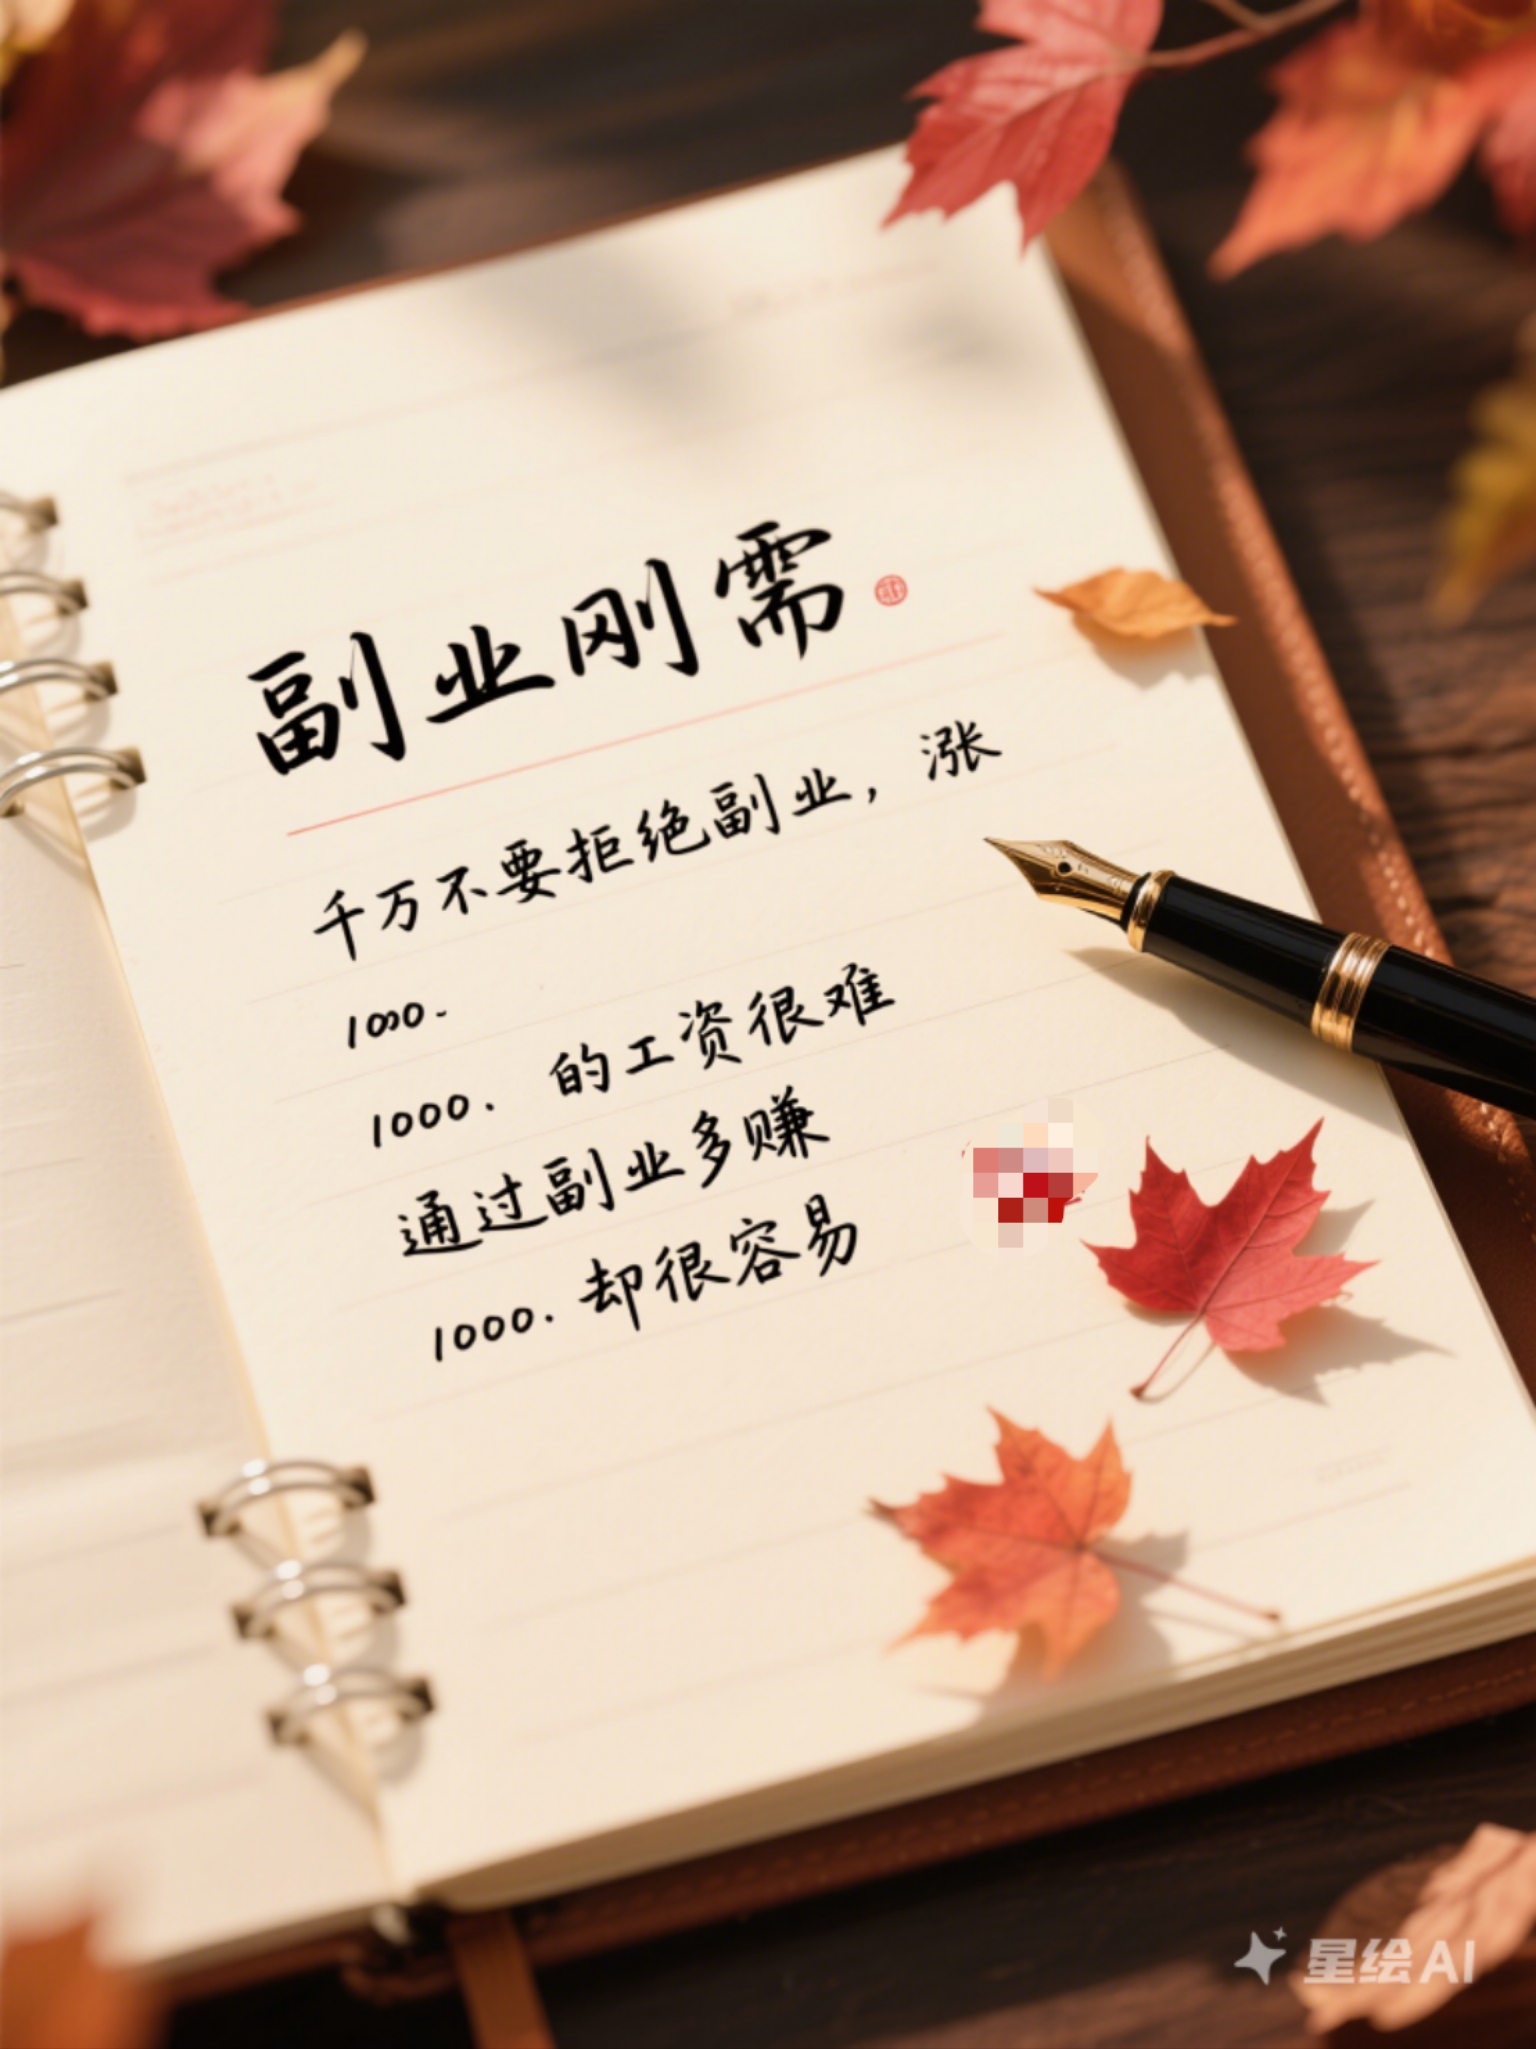 副业刚需
千万不要拒绝副业，涨
1000.
1000. 的工资很难
通过副业多赚
1000. 却很容易
星绘AI